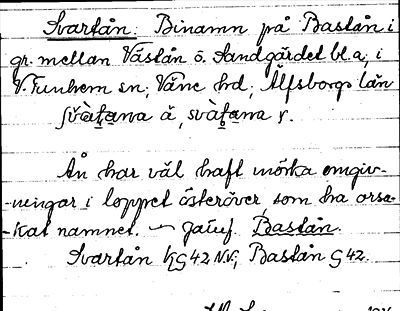 Svartån: Binamn på Bastån i
gr. mellan Västån o. Sandgärdet bl.a, i
V. Tunhem sn; Väne hd; Älfsborgs län
Ån har väl haft mörka omgiv-
-ningar i loppet österöver som ha orsa-
-kat namnet. — Jämf. Bastån.
Svartån KG42NV; Bastån G42.